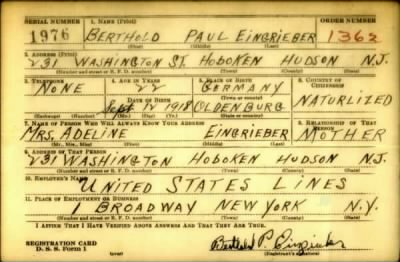 SERIAL NUMBER 1. NAME (Print) ORDER NUMBER
1976 BERTHOLD PAUL EINGRIEBER 1362
(First) (Middle) (Last)
2. ADDRESS (Print)
231 WASHINGTON ST. HOBOKEN HUDSON N.J.
(Number and street or R. F. D. number) (Town) (County) (State)
3. TELEPHONE 4. AGE IN YEARS 5. PLACE OF BIRTH 6. COUNTRY OF CITIZENSHIP
NONE 22 GERMANY
DATE OF BIRTH (Town or county) NATURLIZED
Sept 12 1918 OLDENBURG
(Exchange) (Number) (Mo.) (Day) (Yr.) (State or country)
7. NAME OF PERSON WHO WILL ALWAYS KNOW YOUR ADDRESS 8. RELATIONSHIP OF THAT PERSON
MRS. ADELINE EINGRIEBER MOTHER
(Mr., Mrs., Miss) (First) (Middle) (Last)
9. ADDRESS OF THAT PERSON
231 WASHINGTON HOBOKEN HUDSON N.J.
(Number and street or R. F. D. number) (Town) (County) (State)
10. EMPLOYER'S NAME
UNITED STATES LINES
11. PLACE OF EMPLOYMENT OR BUSINESS
1 BROADWAY NEW YORK N.Y.
(Number and street or R. F. D. number) (Town) (County) (State)
I AFFIRM THAT I HAVE VERIFIED ABOVE ANSWERS AND THAT THEY ARE TRUE.
REGISTRATION CARD
D. S. S. Form 1 Berthold P. Eingrieber
(over) (Registrant's signature)